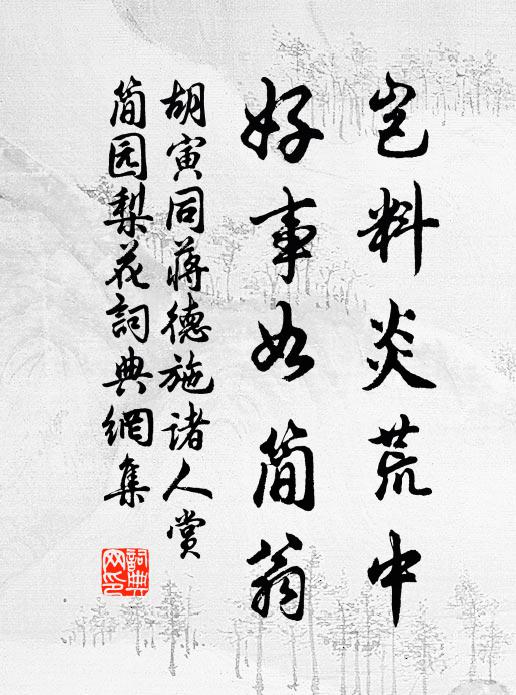 岂料炎荒中
好事如简翁
胡寅同蒋德施诸人赏
简园梨花詞典網集
詞典
网印